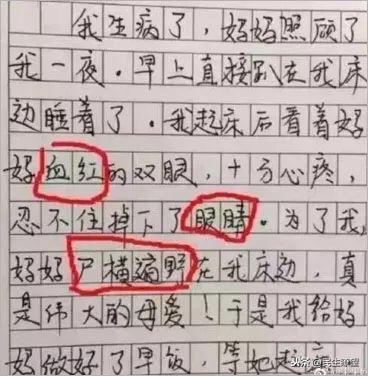 我生病了，妈妈照顾了
我一夜。早上直接趴在我床
边睡着了。我起床后看着妈
妈血红的双眼，十分心疼，
忍不住掉下了眼睛。为了我，
妈妈尸横遍野在我床边，真
是伟大的母爱！于是我给妈
妈做好了早饭，等她起床
头条@民生瞭望